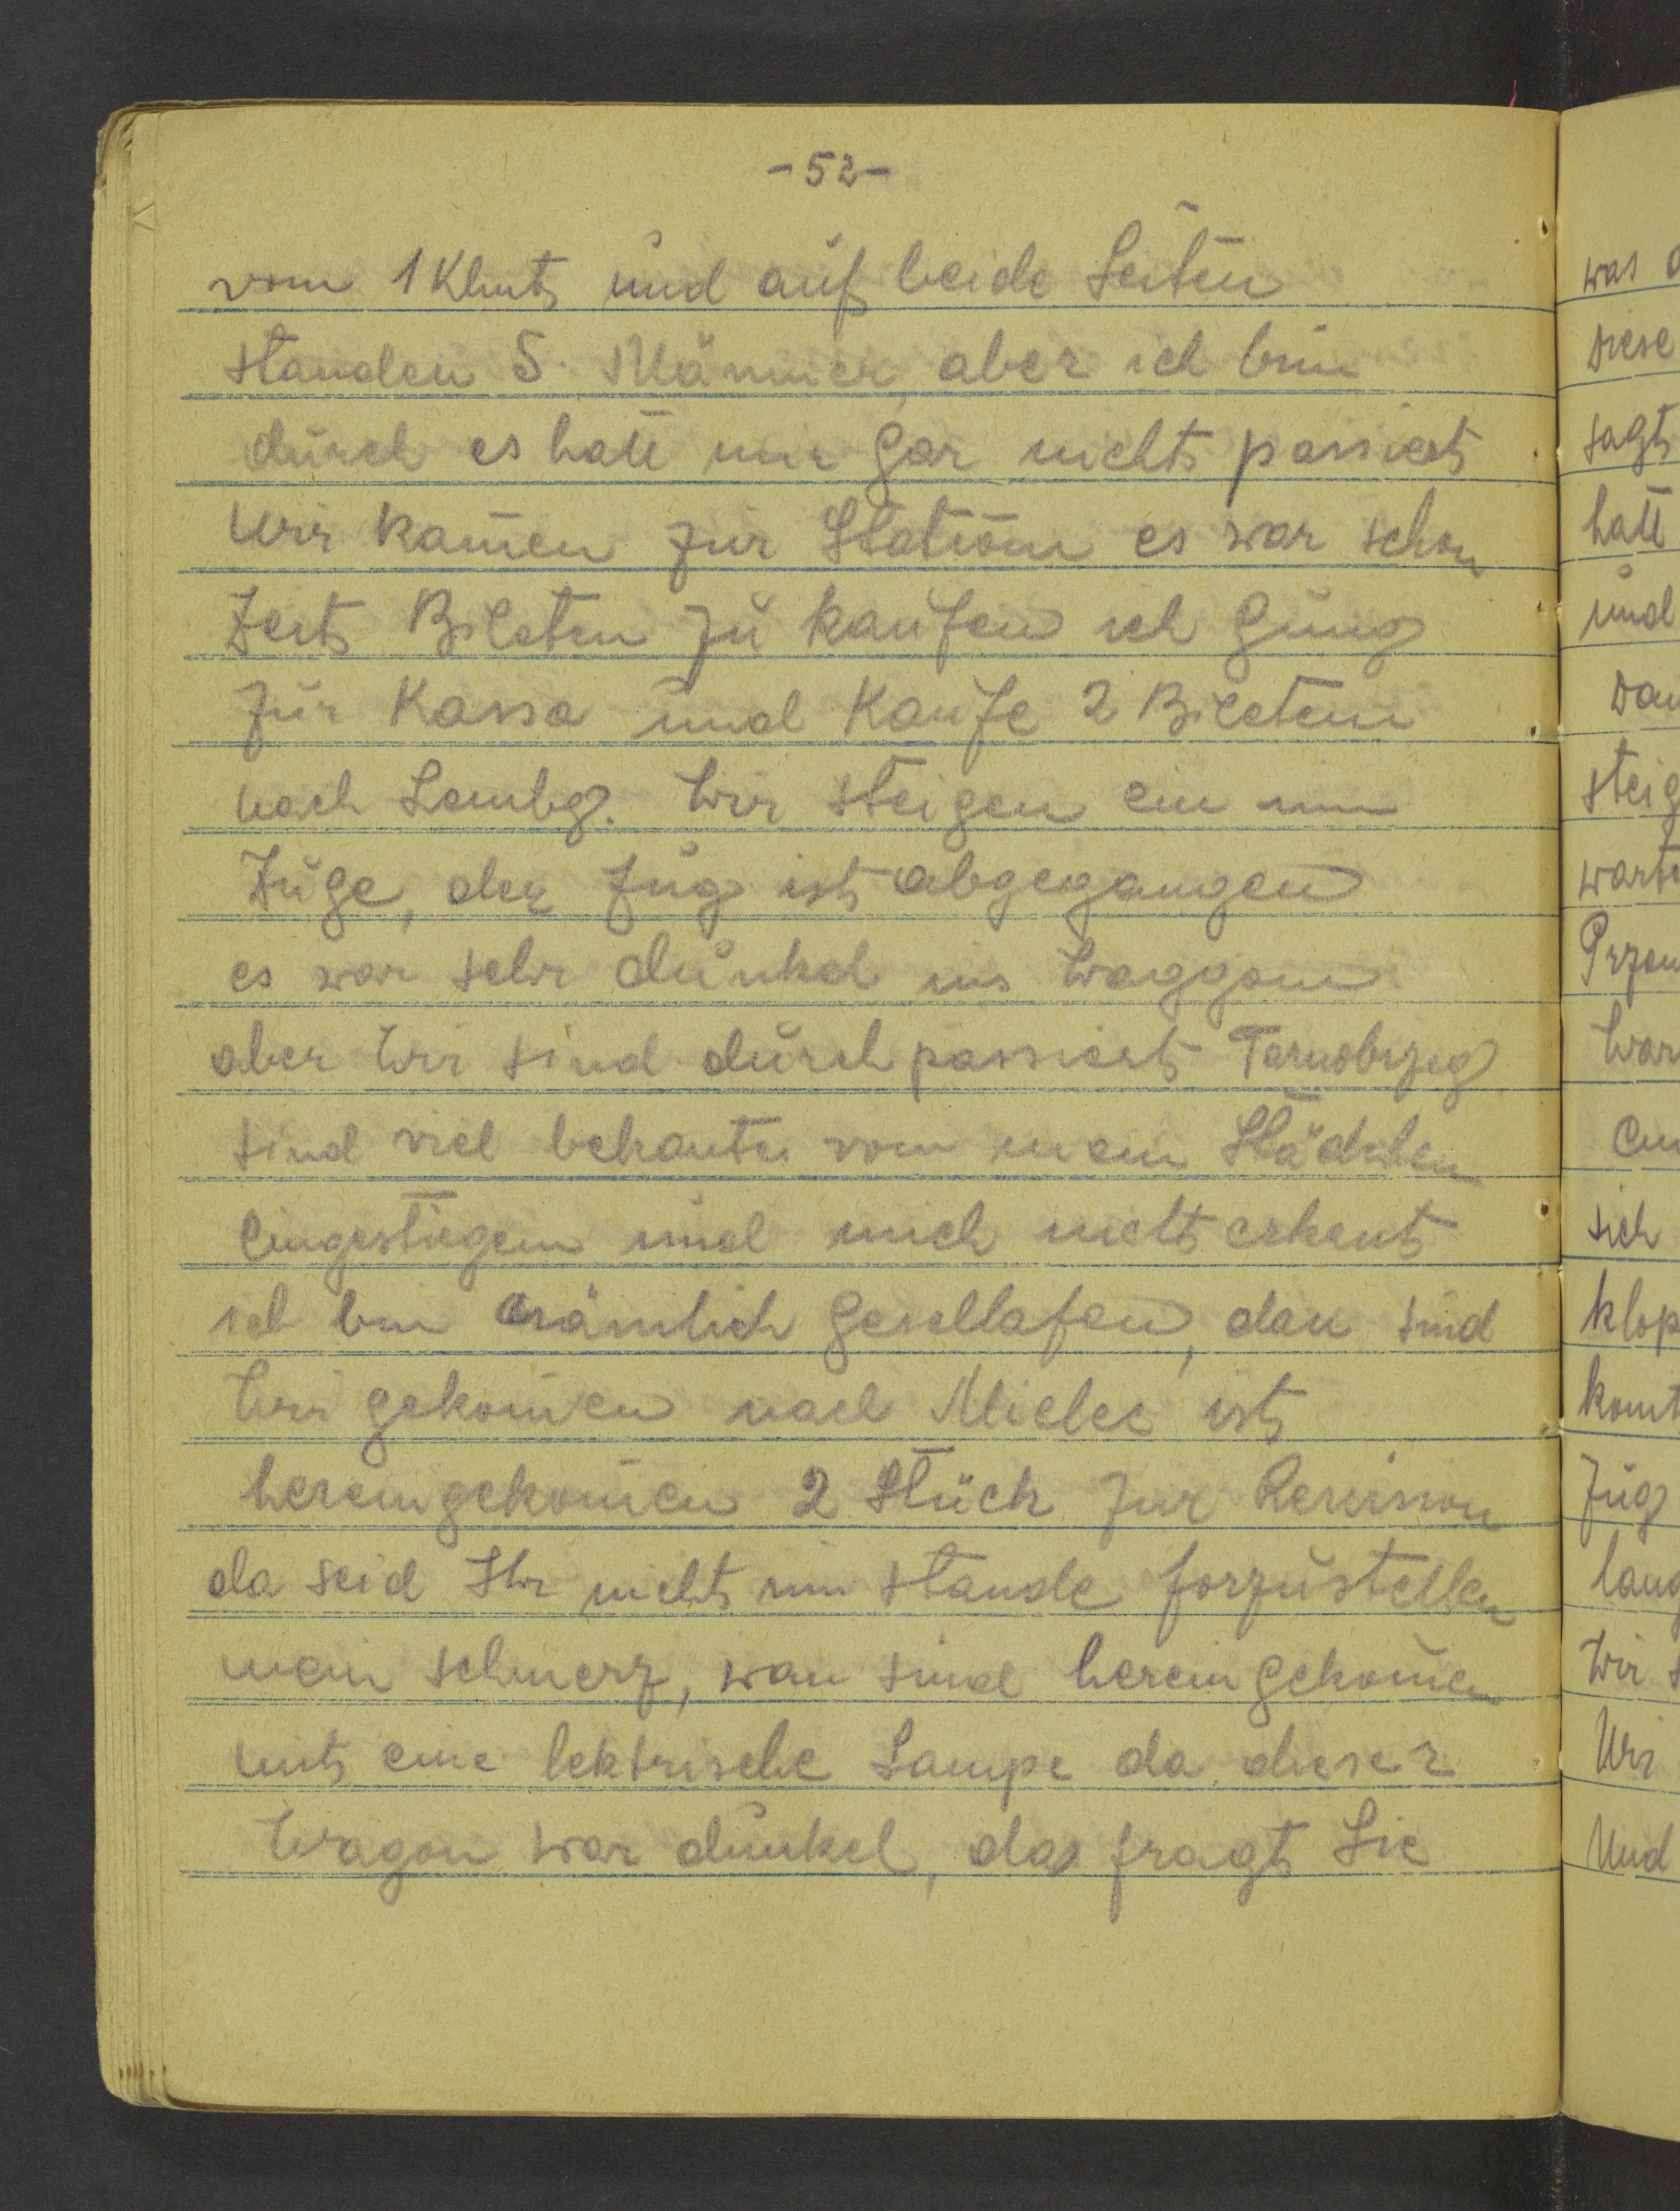 -52-
vom 1 Klmt und auf beide Seiten
standen 5. Männer, aber ich bin
durch es hatt mir gar nichts passiert
Wir kamen zur Station es war schon
Zeit Bileten zu kaufen ich ging
zur Kassa und Kaufe 2 Bileten
nach Lembg. Wir steigen ein im
Zuge, der Zug ist abgegangen
es war sehr dunkel ins Waggon
aber Wir sind durch passiert Tarnobrzeg
sind viel bekante vom mein Städchen
eingestiegen und mich nicht erkent
ich bin nämlich geschlafen, dan sind
Wir gekomen nach Mielec ist
hereingekomen 2 Stück zur Revision
da seid Ihr nicht im stande forzustellen
mein schmerz, wan sind herein gekomen
mit eine lektrische Lampe da dieser
Wagon war dunkel, das fragt Sie
was
Diese
sagt
hatt
und
Dan
steig
warte
War
sich
klop
komt
Zug
lang
Wir
Wir
Und